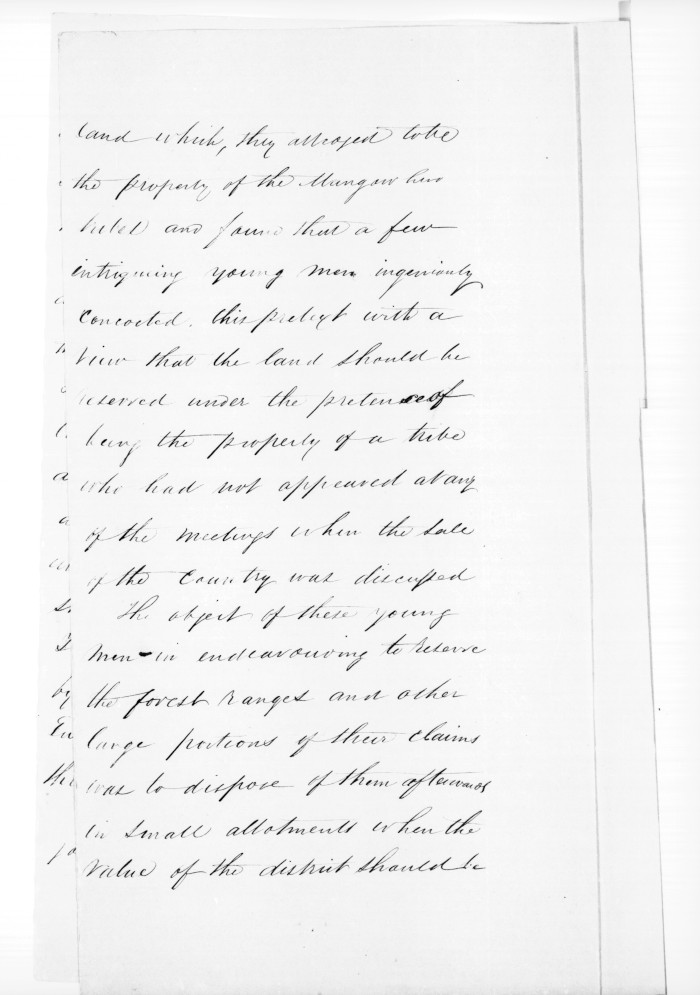 land which, they alledged to be
the property of the Mangawhero
tribe and found that a few
intriguing young men ingeniously
concocted. this pretext with a
view that the land should be
reserved under the pretence of
being the property of a tribe
who had not appeared at any
of the meetings when the sale
of the Country was discussed
The object of these young
men - in endeavouring to reserve
the forest ranges and other
large portions of their claims
was to dispose of them afterwards
in small allotments when the
value of the district should be